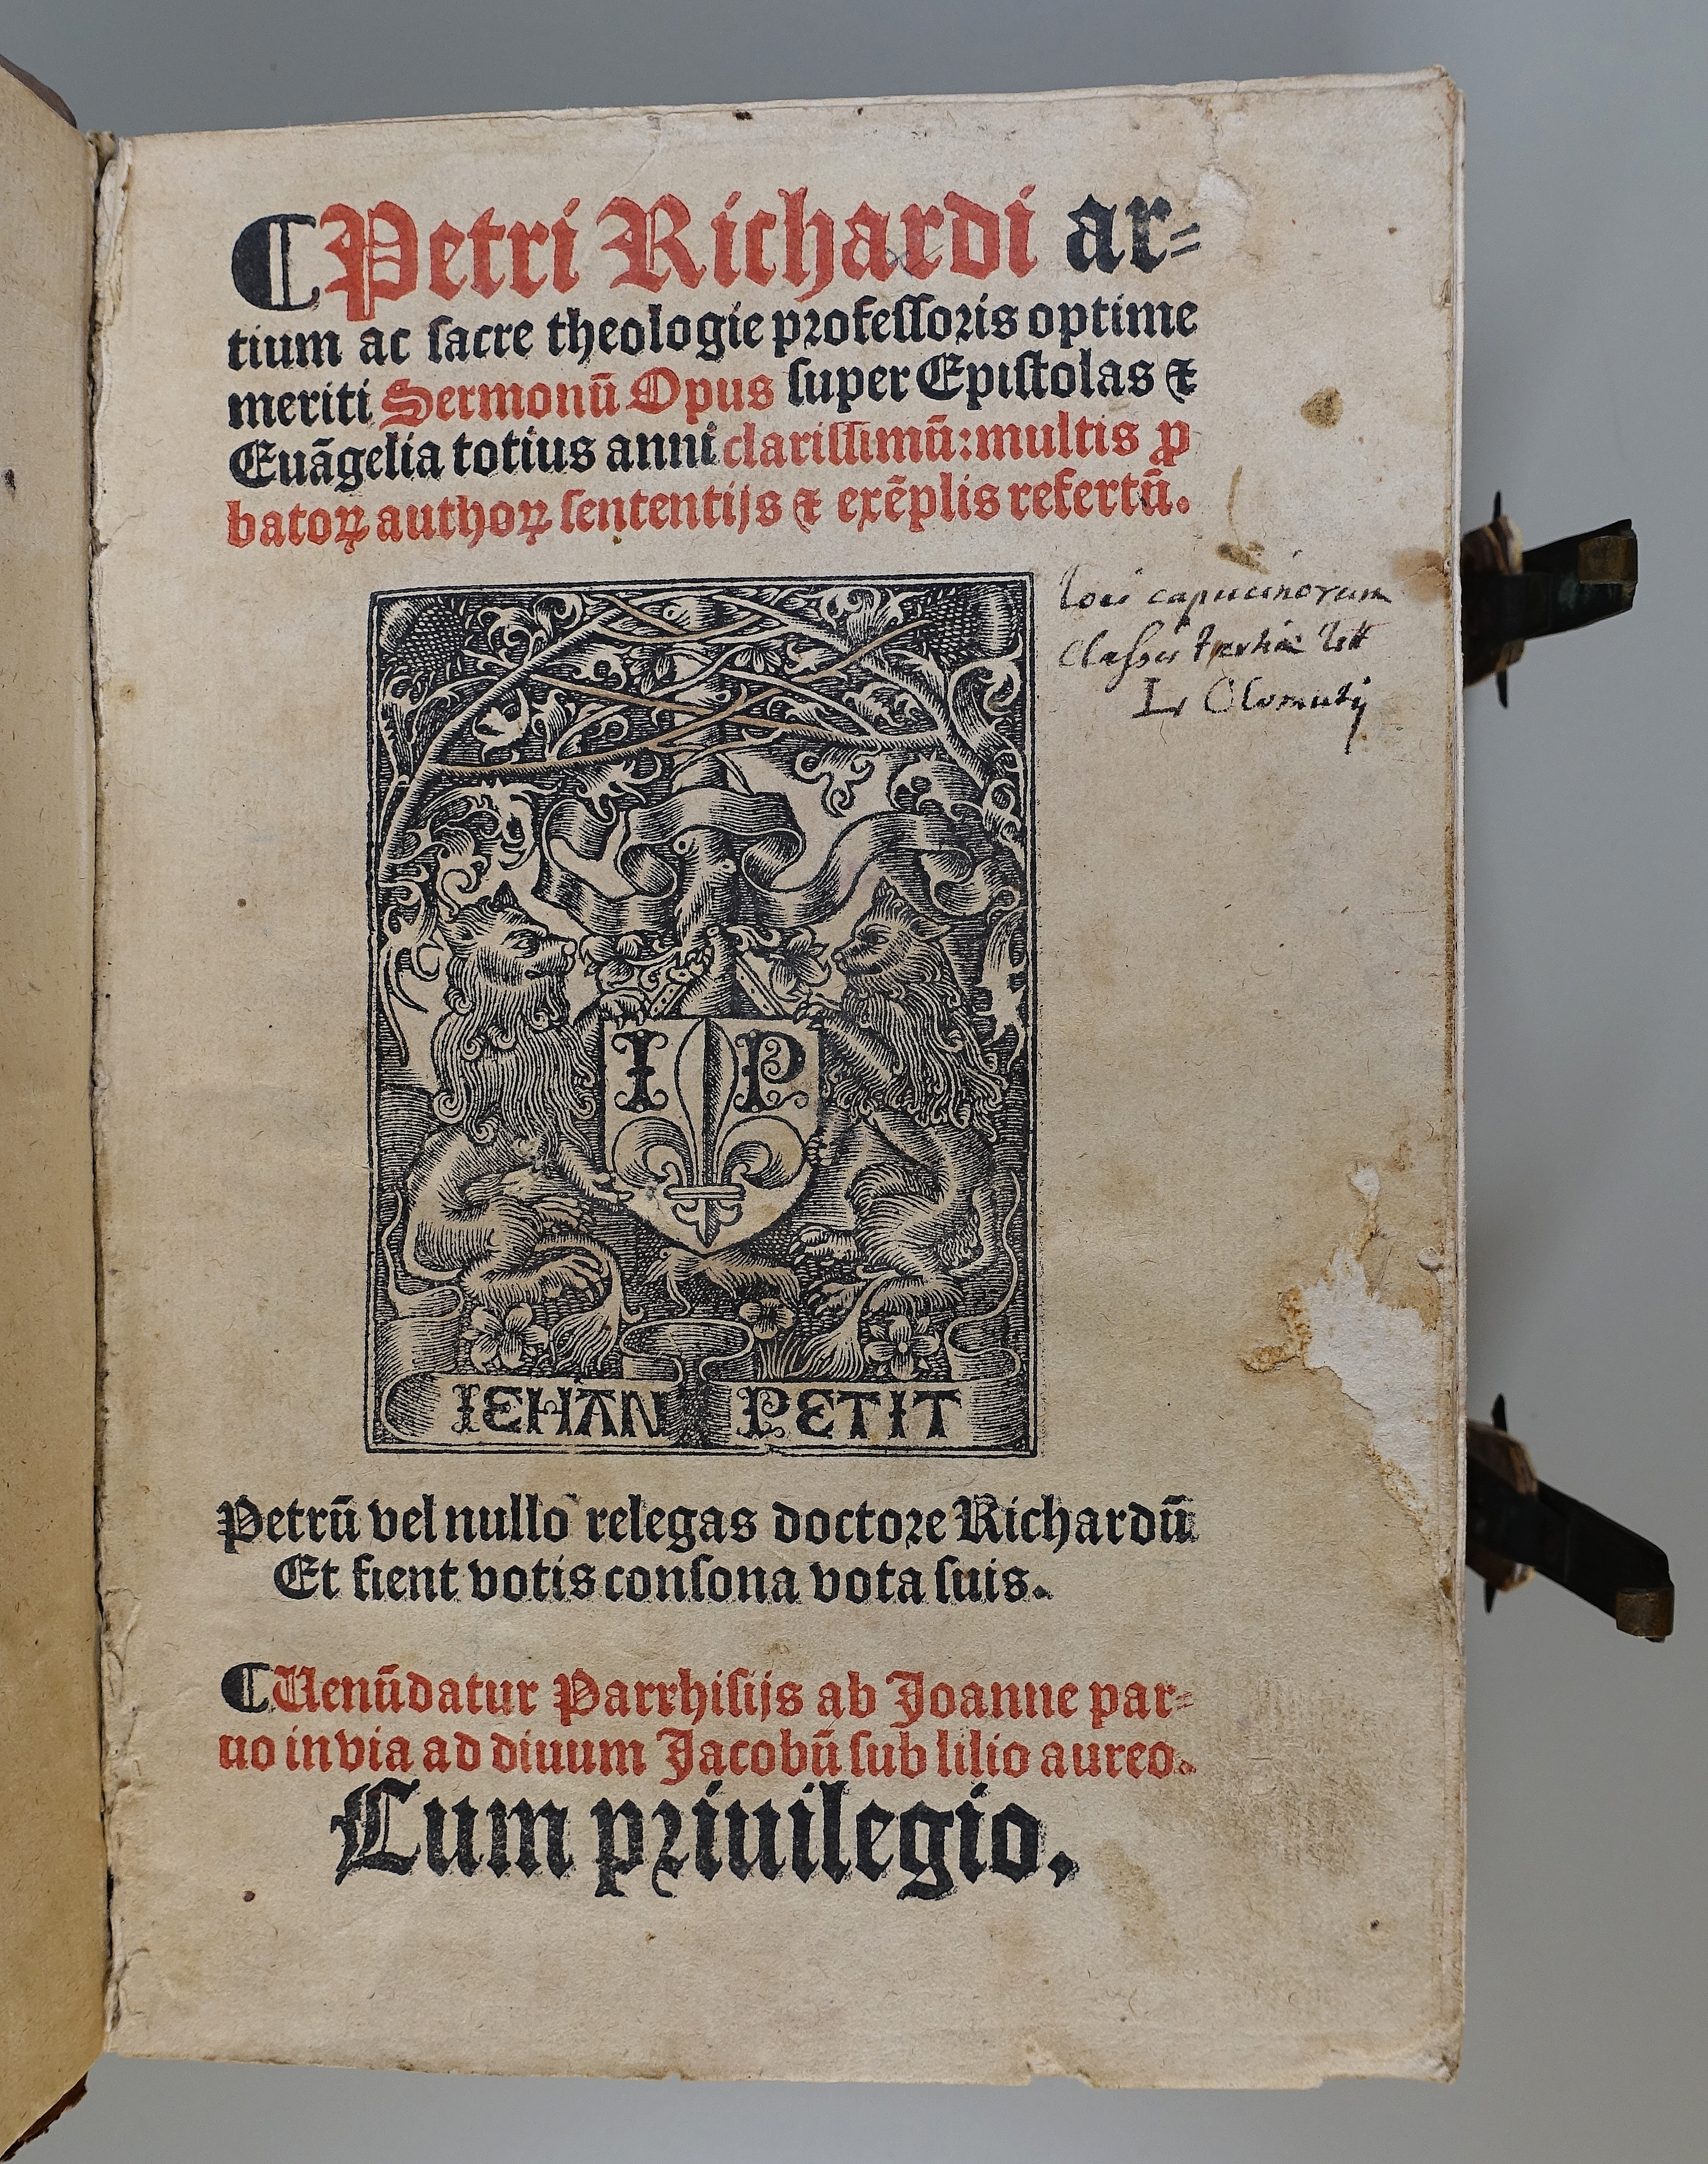 ¶Petri Richardi ar⸗
tium ac ſacre theologie profeſſoꝛis optime
meriti Sermonū Opus ſuper Epiſtolas ⁊
Euāgelia totius anni clariſſimū: multis ꝓ
batoꝝ authoꝝ ſententijs ⁊ exēplis refertū.
Loci capucinorum
Classis tertiæ litt
L Olomutij
I P
IEHAN PETIT
Petrū vel nullo relegas doctoꝛe Richardū
Et fient votis conſona vota ſuis.
¶Uenūdatur Parrhiſijs ab Joanne par⸗
uo in via ad diuum Jacobū ſub lilio aureo.
Cum pꝛiuilegio.